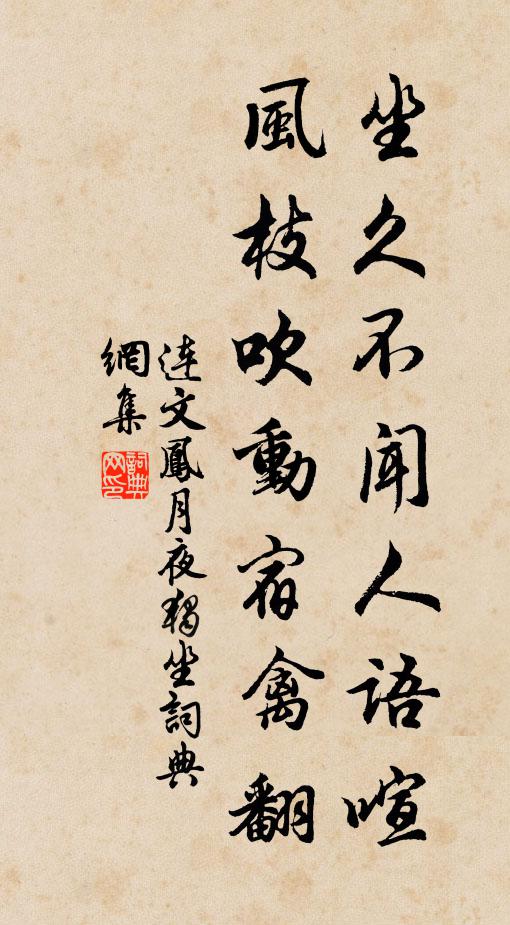 坐久不聞人語喧
風枝吹動宿禽翻
連文鳳月夜獨坐詞典
網集
詞典網印